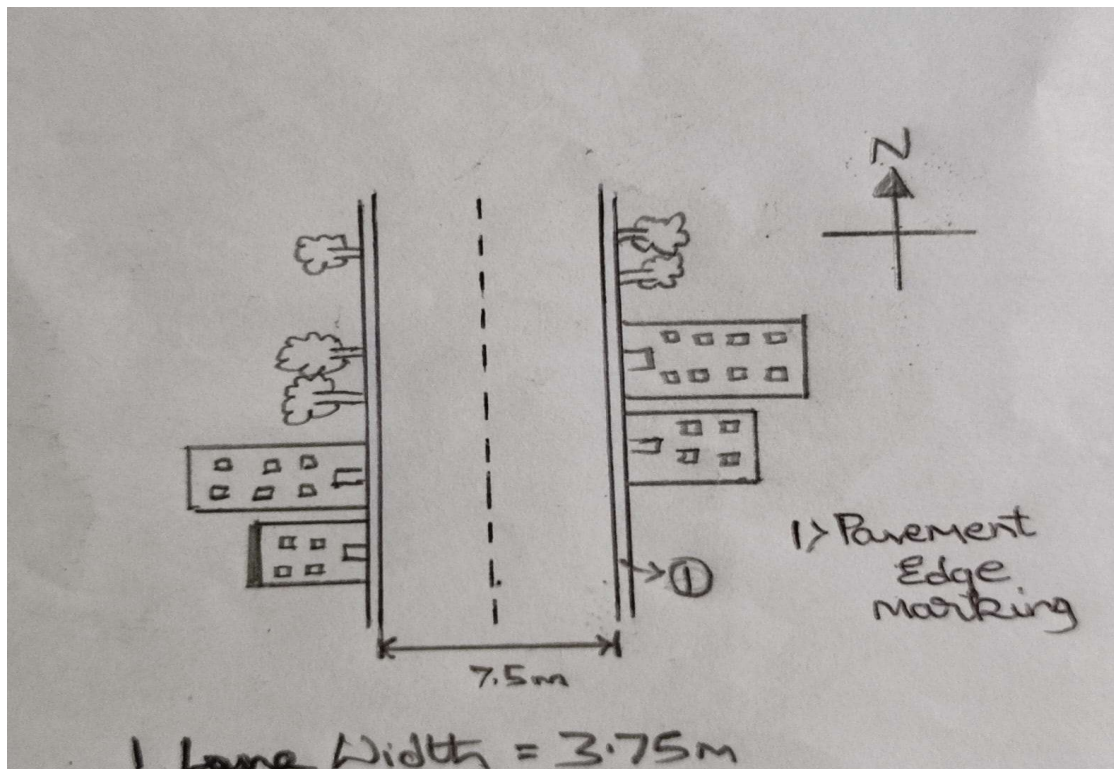 N
1> Pavement
Edge
marking
①
7.5m
1 Lane Width = 3.75m